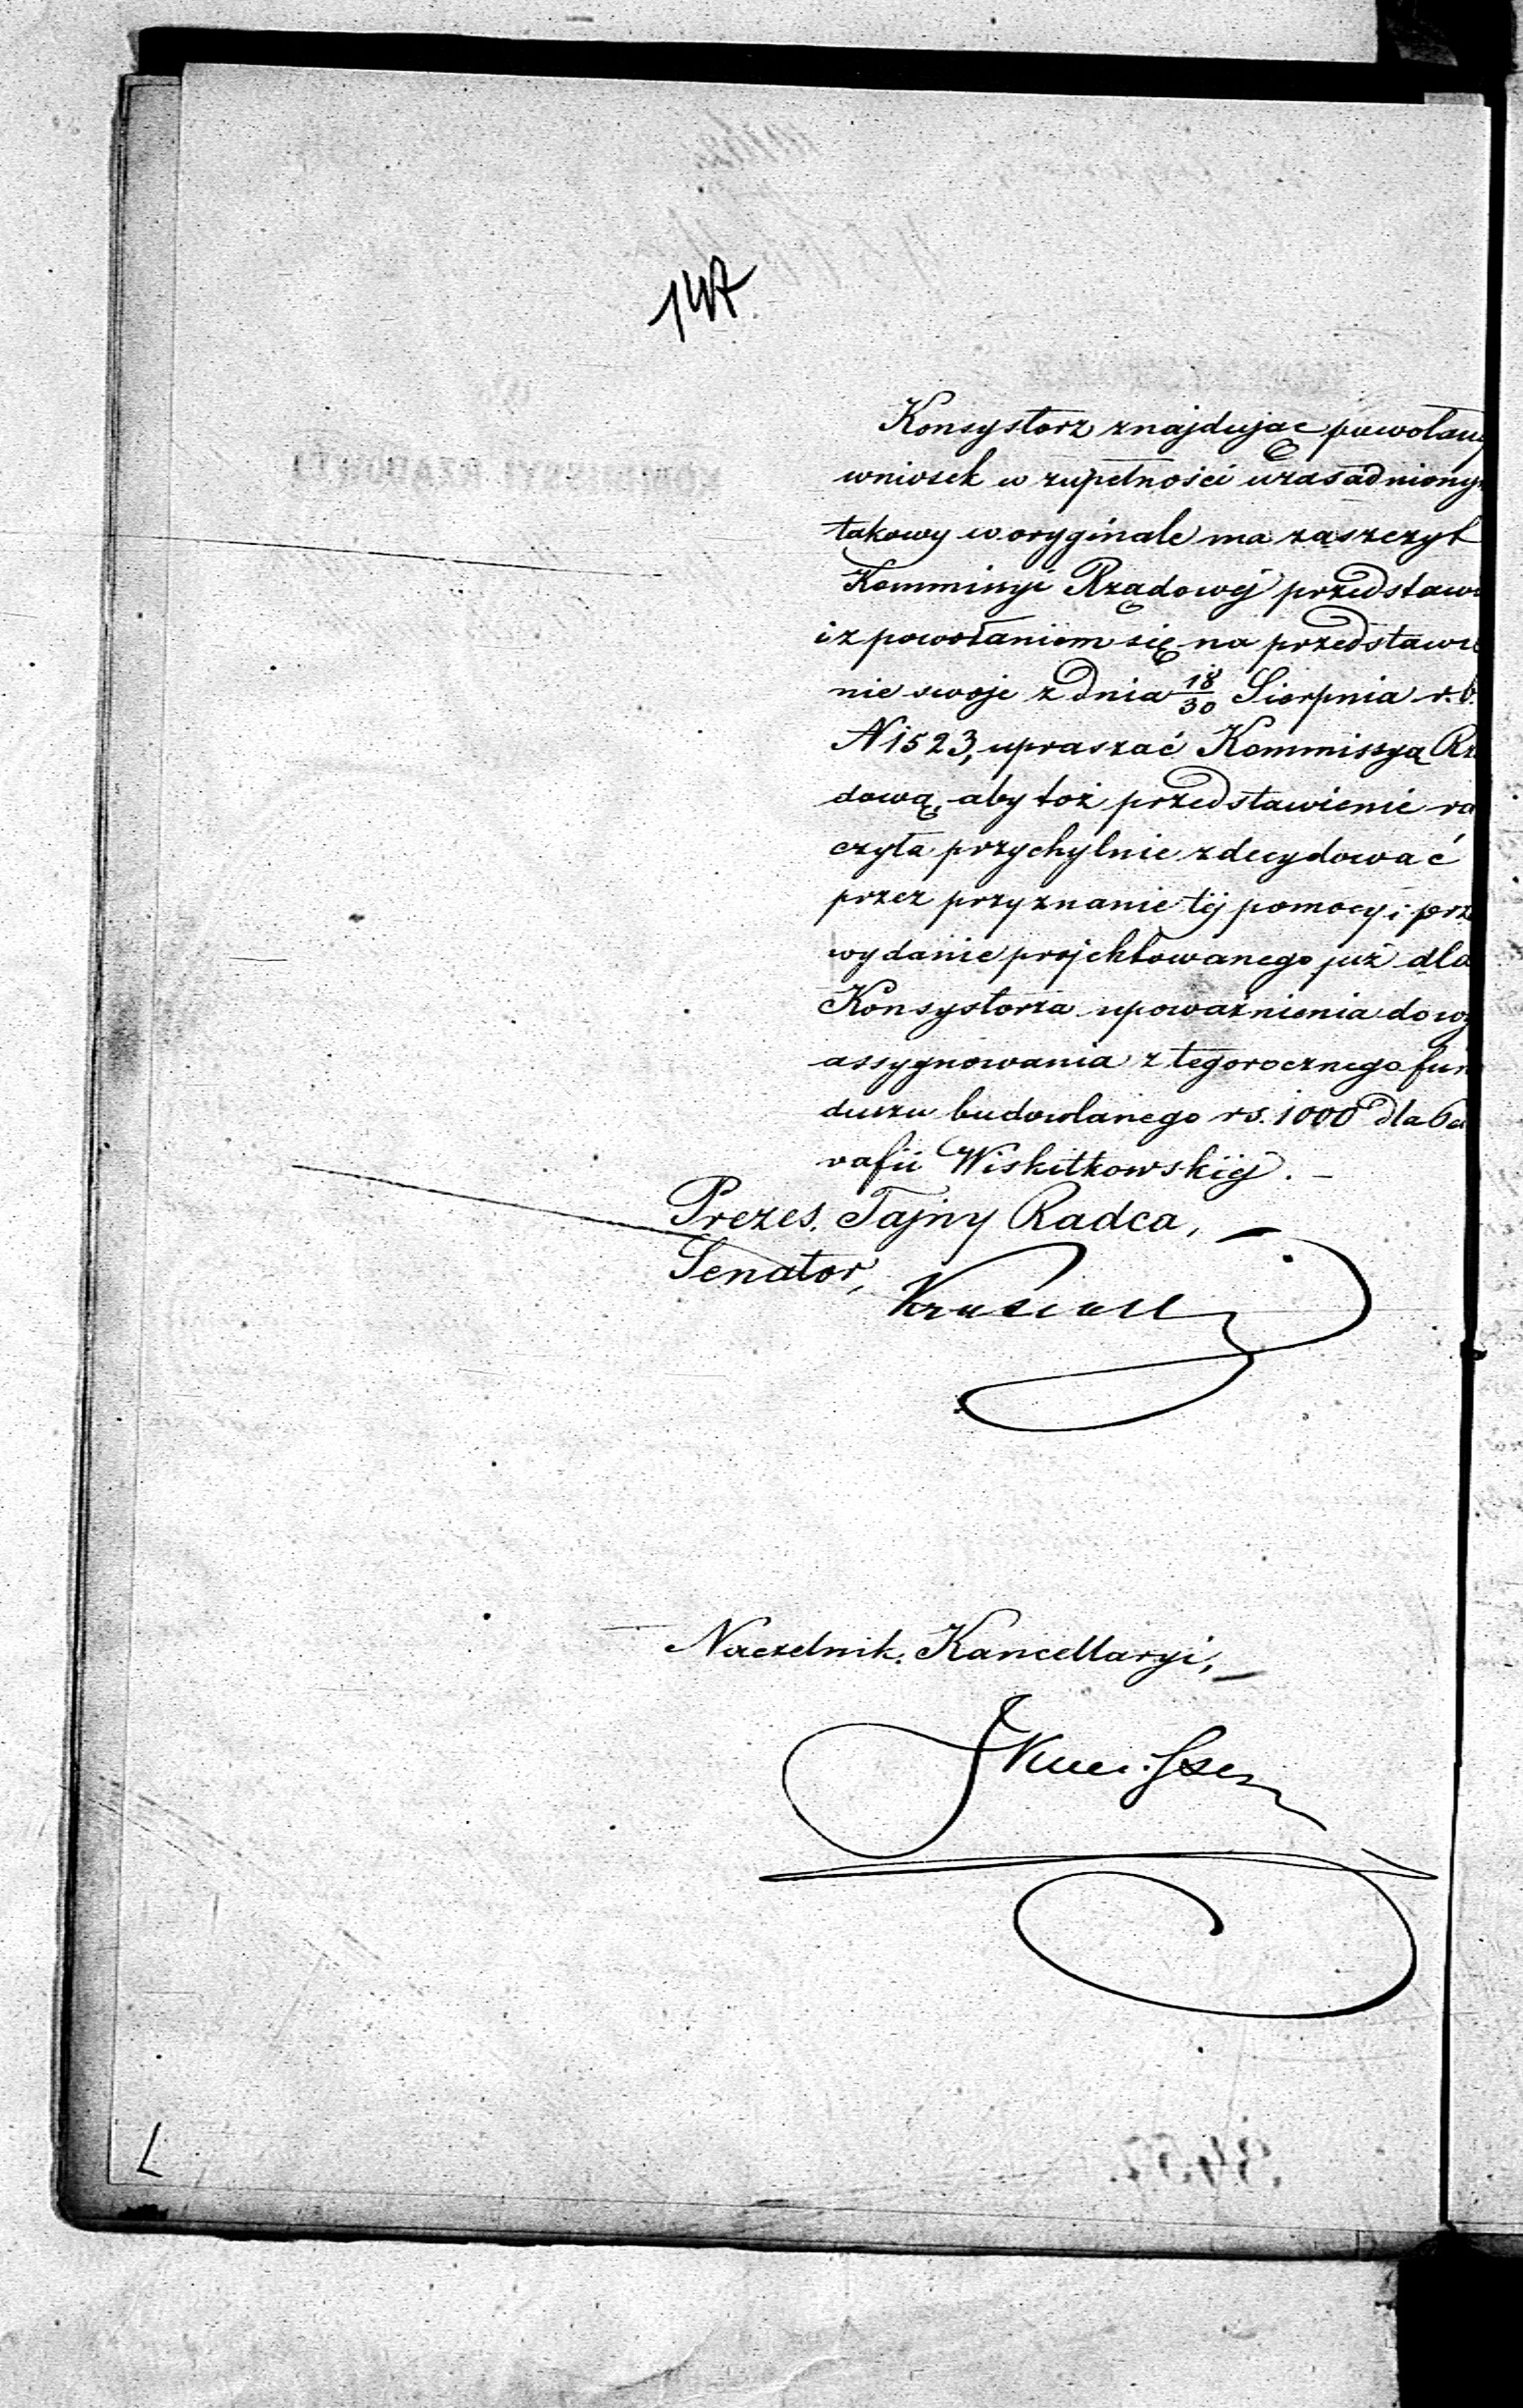 147
Konsystorz znajdując powołan
wniosek w zupełności uzasadniony
takowy w oryginale ma zaszczyt
Kommissyi Rządowej przedstawi
i z powołaniem się na przedstawie
nie swoje z dnia 18/30 Sierpnia r. b.
N 1523, upraszać Kommissyą Rz
dową, aby toż przedstawienie ra
czyła przychylnie zdecydować
przez przyznanie tej pomocy i prze
wydanie projektowanego już dla
Konsystorza upoważnienia do wy
assygnowania z tegorocznego fun
duszu budowlanego rs. 1000 dla Pa
rafii Wiskitkowskiej. –
Prezes, Tajny Radca,
Senator,
Naczelnik Kancellaryi,